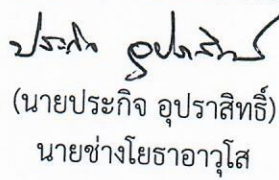 ประกิจ อุปราสิทธิ์
(นายประกิจ อุปราสิทธิ์)
นายช่างโยธาอาวุโส